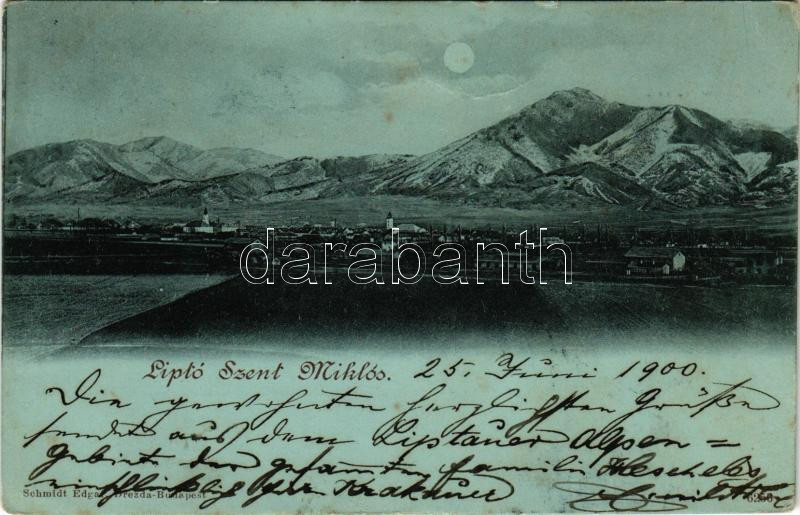 darabanth
Liptó Szent Miklós. 25. Juni 1900.
Die gewohnten herzlichsten Grüße
sendet aus dem Liptauer Alpen =
gebiete der gesamten familie
Krakauer
Schmidt Edgar, Drezda-Budapest